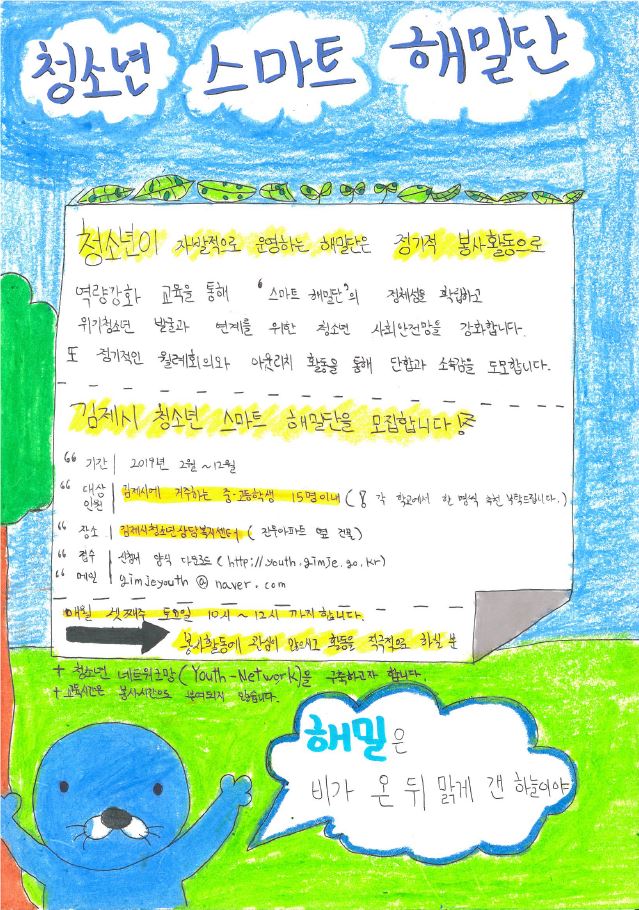 청소년 스마트 해밀단
청소년이 자발적으로 운영하는 해밀단은 정기적 봉사활동으로
역량강화 교육을 통해 '스마트 해밀단'의 정체성을 확립하고
위기청소년 발굴과 연계를 위한 청소년 사회안전망을 강화합니다.
또 정기적인 월례회의와 아웃리치 활동을 통해 단합과 소속감을 도모합니다.
김제시 청소년 스마트 해밀단을 모집합니다!
" 기간 | 2019년 2월 ~12월
" 대상 인원 | 김제시에 거주하는 중·고등학생 15명이내 ( 각 학교에서 한 명씩 추천 부탁드립니다.)
" 장소 | 김제시청소년상담복지센터 ( 옆 건물)
" 접수 | 신청서 양식 다운로드 (http://youth.gimje.go.kr)
" 메일 | gimjeyouth @ naver.com
매월 셋째주 토요일 10시 ~ 12시 까지 합니다.
봉사활동에 관심이 많으시고 활동을 적극적으로 하실 분
+ 청소년 네트워크망(Youth-Network)을 구축하고자 합니다.
+ 교육시간은 봉사시간으로 부여되지 않습니다.
해밀은
비가 온 뒤 맑게 갠 하늘이야